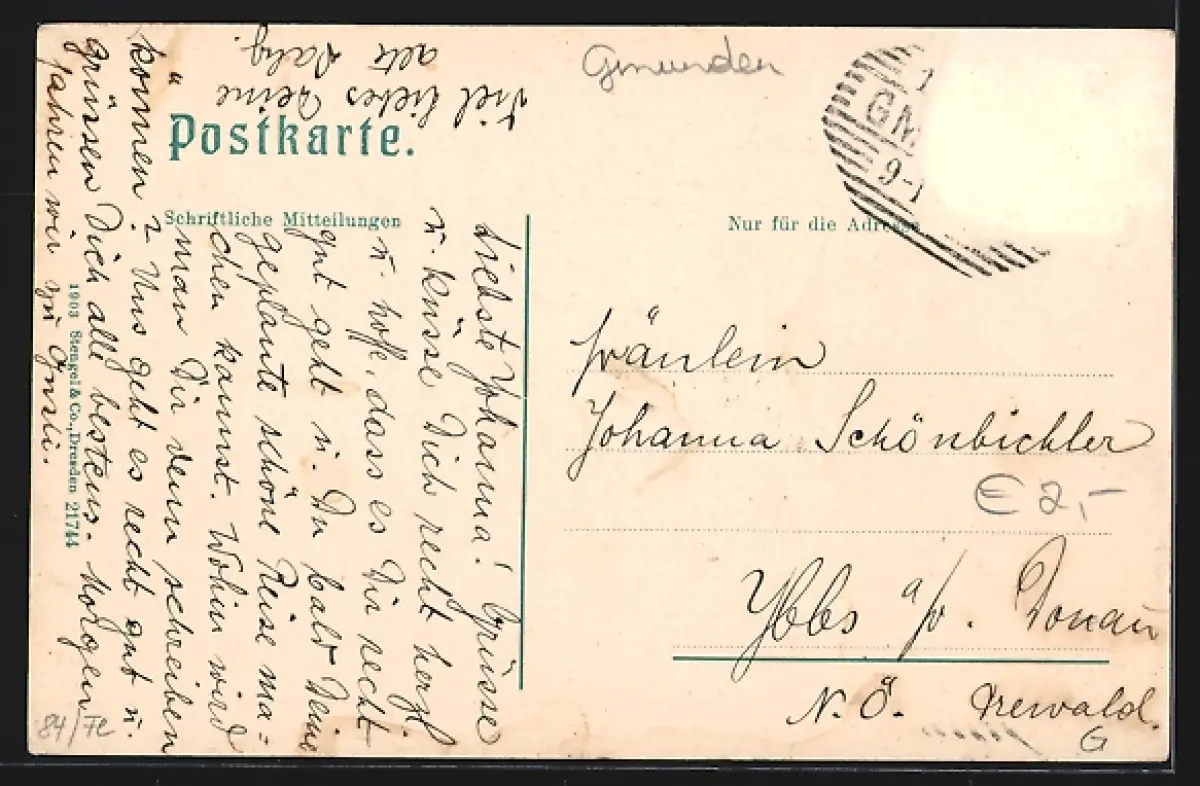 Gmunden
1
GM
9-1
Postkarte.
Schriftliche Mitteilungen
Nur für die Adresse
Fräulein
Johanna Schönbichler
€ 2,-
Ybbs a/D. Donau
N. Ö.
G
Liebste Johanna! Grüsse
u. küsse Dich recht herzl
u. hoffe, dass es Dir recht
gut geht u. Du bald Deine
geplante schöne Reise ma=
chen kannst. Wohin wird
man Dir denn schreiben
können? Uns geht es recht gut u.
grüssen Dich alle bestens. Morgen
fahren wir zu Gusti.
Viel liebes Deine
alte
1903 Stengel & Co., Dresden 21744
84/